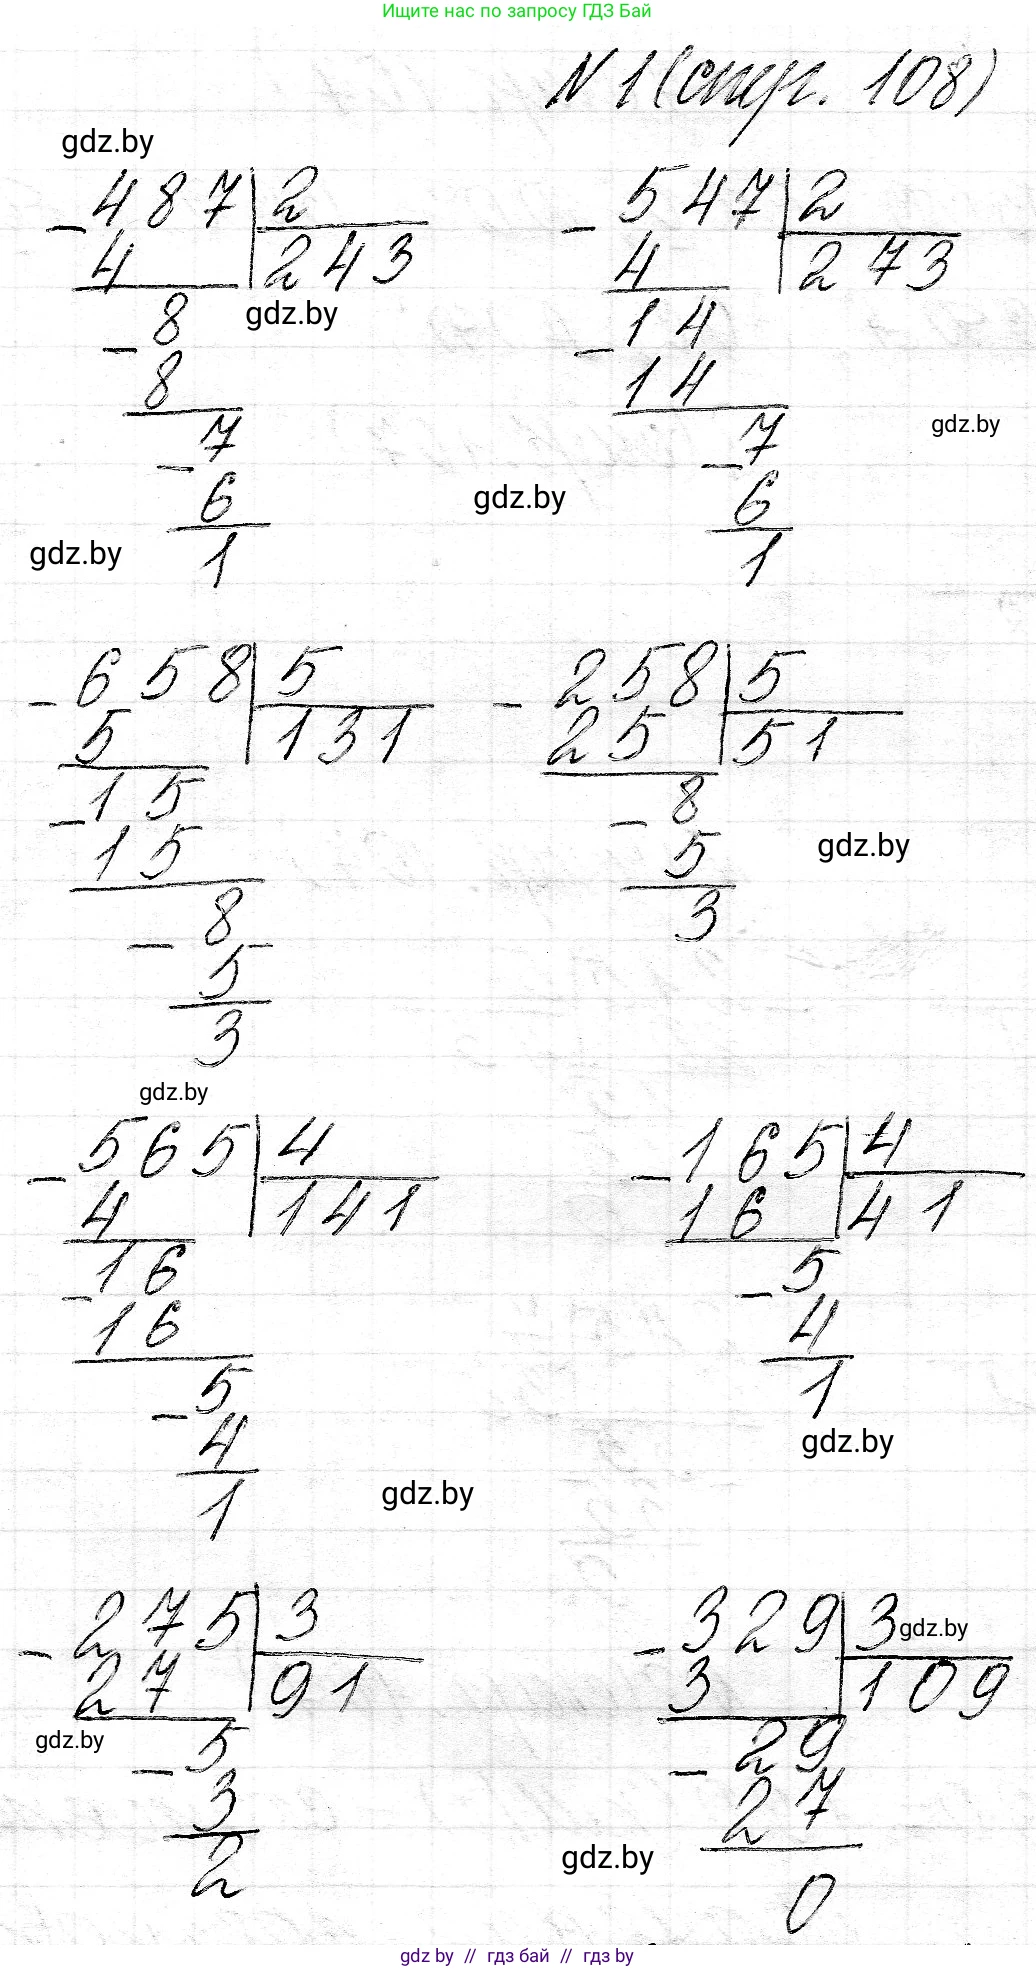 Ищите нас по запросу ГДЗ Бай
N 1 (стр. 108)
gdz.by
- 487 | 2
4 243
gdz.by
- 8
8
- 7
6
1
gdz.by
- 547 | 2
4 273
- 14
14
gdz.by
- 7
gdz.by
6
1
- 658 | 5
5 131
- 15
15
- 8
5
3
- 258 | 5
25 51
- 8
gdz.by
5
3
gdz.by
- 565 | 4
4 141
- 16
16
- 5
4
1
gdz.by
- 165 | 4
16 41
- 5
4
1
gdz.by
- 275 | 3
27 91
gdz.by
- 5
3
2
- 329 | 3
gdz.by
3 109
- 29
27
gdz.by
0
gdz by // гдз бай // гдз by